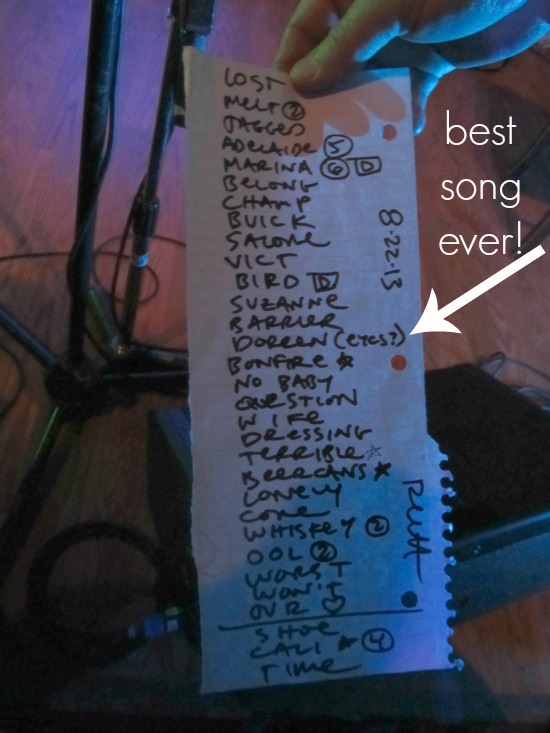 LOST
MELT ②
JAGGED
ADELAIDE ⑤
MARINA ⑥ D
BELONG
CHAMP
BUICK
SALOME
VICT
BIRD D
SUZANNE
BARRIER
DOREEN (EYES?)
BONFIRE ☆
NO BABY
QUESTION
WIFE
DRESSING
TERRIBLE ☆
BEERCANS ★
LONELY
COME
WHISKEY ②
OOL ②
WORST
WON'T
OUR ♡
SHOE
CALI ★ ④
TIME
8-22-13
best
song
ever!